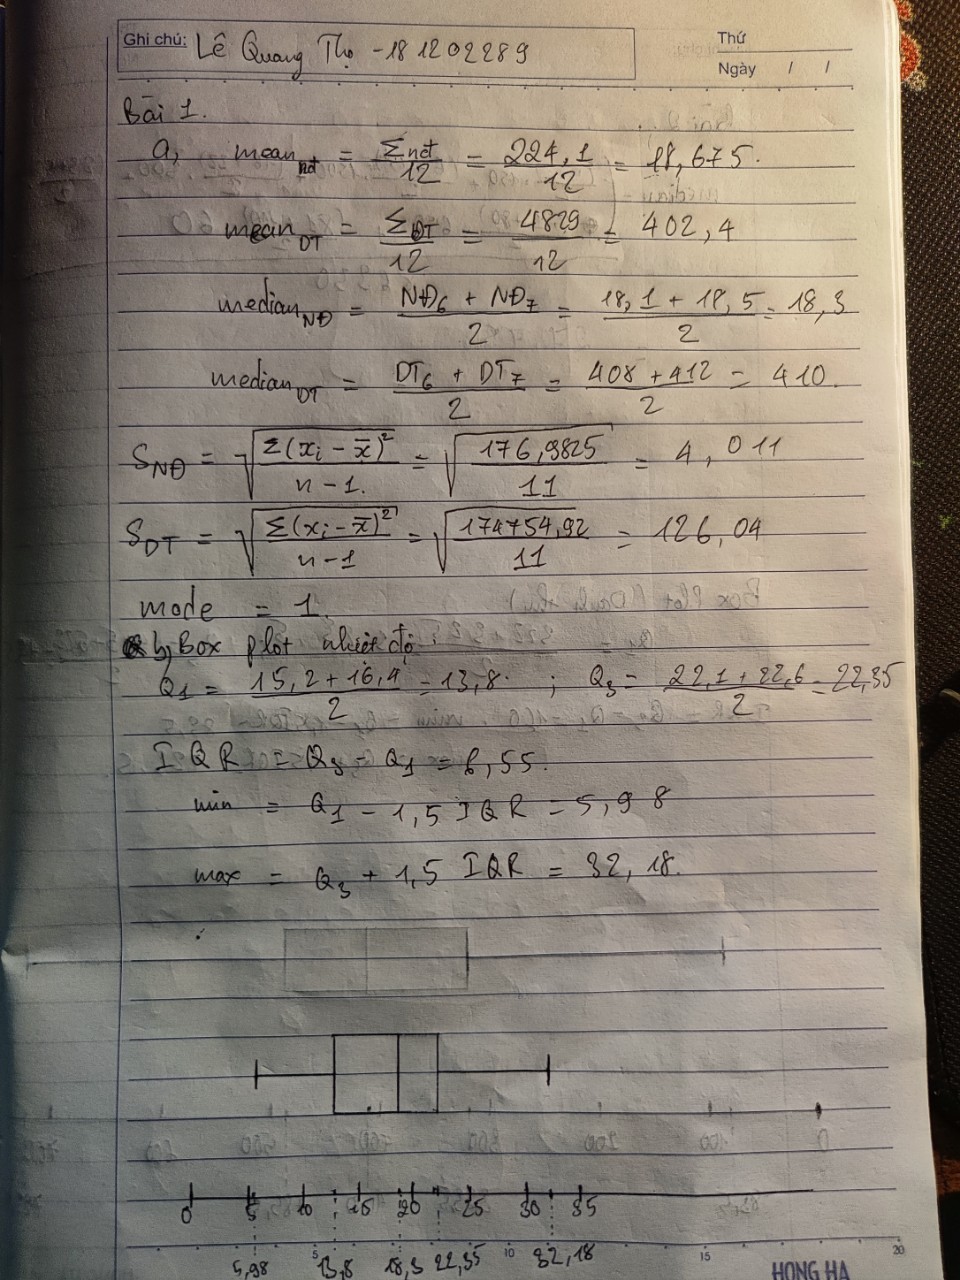 Ghi chú: Lê Quang Thọ - 181202289
Thứ
Ngày / /
Bài 1.
a, mean_nđ = Σnđ/12 = 224,1/12 = 18,675.
mean_DT = Σ_DT/12 = 4829/12 = 402,4
median_NĐ = (NĐ₆ + NĐ₇)/2 = (18,1 + 18,5)/2 = 18,3
median_DT = (DT₆ + DT₇)/2 = (408 + 412)/2 = 410.
S_NĐ = √(Σ(xᵢ - x̄)²/(n - 1.)) = √(176,9825/11) = 4,011
S_DT = √(Σ(xᵢ - x̄)²/(n - 1)) = √(174754,92/11) = 126,04
mode = 1.
b, Box plot nhiệt độ:
Q₁ = (15,2 + 16,4)/2 = 13,8. ; Q₃ = (22,1 + 22,6)/2 = 22,35
IQR = Q₃ - Q₁ = 6,55.
min = Q₁ - 1,5 IQR = 5,98
max = Q₃ + 1,5 IQR = 32,18.
0 5 10 15 20 25 30 35
5,98 13,8 18,3 22,35 32,18
5 10 15 20
HONG HA